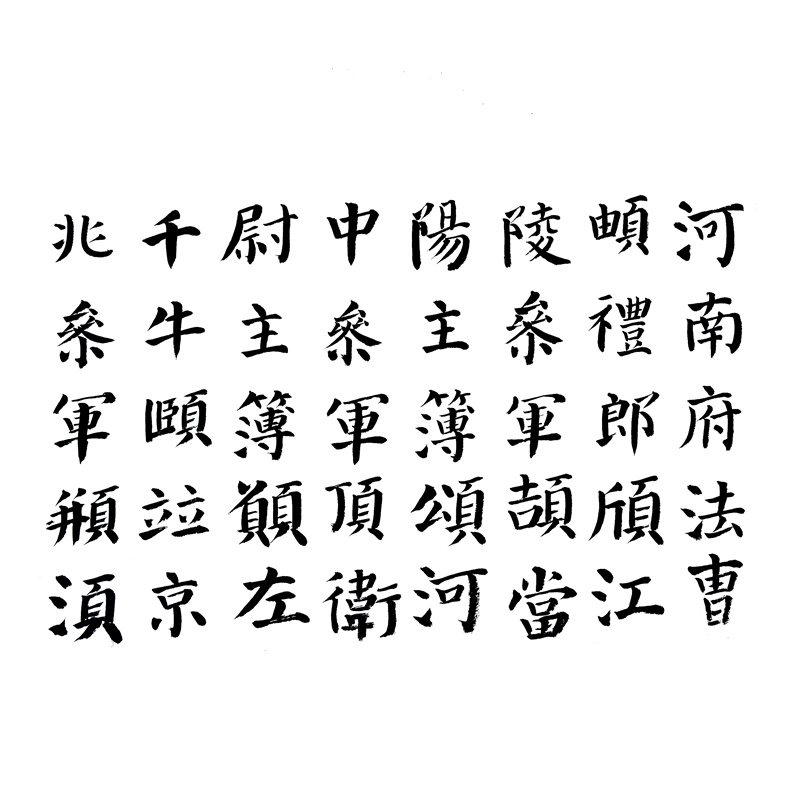 河南府法曹
頔禮郎頎江
陵參軍頡當
陽主簿頌河
中參軍頂衛
尉主簿願左
千牛頤竝京
兆參軍頩湏